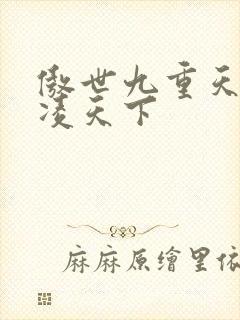 傲世九重天
凌天下
麻麻原繪里依